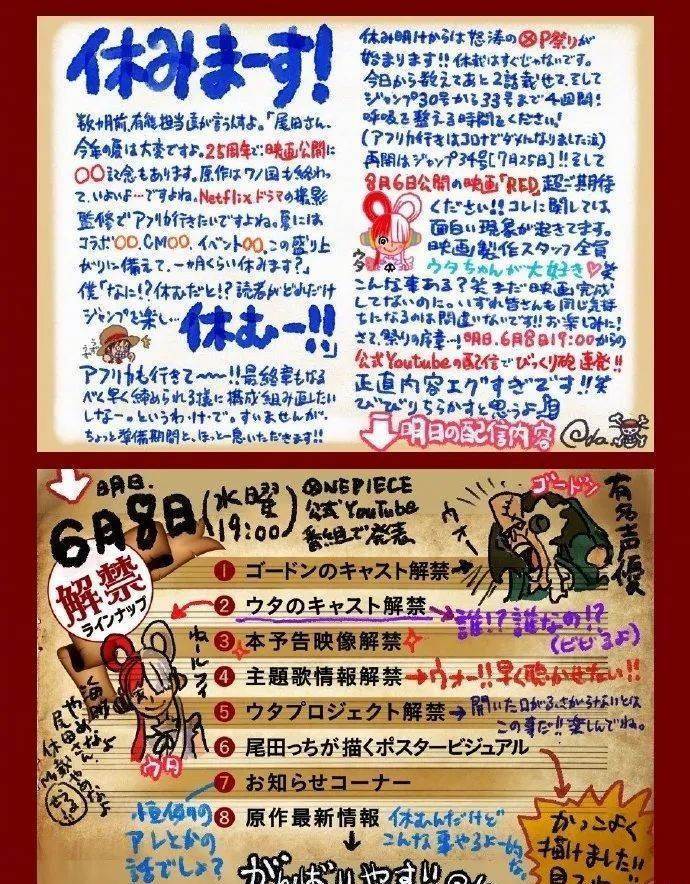 休みまーす!
数カ月前、有能担当達が言うんすよ。「尾田さん、
今年の夏は大変ですよ。25周年で、映画公開に
〇〇記念もあります。原作はワノ国も終わっ
て、いよいよ…ですよね。Netflixドラマの撮影
監修でアフリカ行きたいですよね。夏には
コラボ〇〇、CM〇〇、イベント〇〇、この盛り上
がりに備えて、一ヶ月くらい休みます?」
僕「なに!?休むだと!?読者がどれだけ
ジャンプを楽し… 休むー!!」
アフリカも行きて〜〜!!最終章もなる
べく早く締められる様に構成組み直したい
しなー。というわ・け・で。すいませんが、
ちょっと準備期間と、ほっと一息いただきます!!
休み明けからは怒涛のOP祭りが
始まります!!休載はすぐじゃないです。
今日から数えてあと2話載せて、そして
ジャンプ30号から33号まで4回間!
呼吸を整える時間をください!
(アフリカ行きはコロナでダメになりました泣)
再開はジャンプ34号[7月25日]!!そして
8月6日公開の映画「RED」超ご期待
ください!!コレに関しては
面白い現象が起きてます。
映画製作スタッフ全員
ウタちゃんが大好き♡笑
ウタ
こんな事ある?笑 まだ映画完成
してないのに。いずれ皆さんも同じ気持
ちになるのは間違いないです!!お楽しみに!
さて、祭りの序章…!明日、6月8日19:00からの
公式Youtubeの配信でびっくり砲連発!!
正直内容エグすぎです!!笑
びびりちらかすと思うよ
明日の配信内容
Oda.
明日.
6月8日(水曜19:00)
ONE PIECE
公式YouTube
番組で発表
ウォー
ゴードン
有名声優
解禁
ラインナップ
1 ゴードンのキャスト解禁
2 ウタのキャスト解禁
誰!?誰なの!?
(ビビるよ)
3 本予告映像解禁
4 主題歌情報解禁
ウォー!!早く聴かせたい!!
5 ウタプロジェクト解禁
開いた口がふさがらないとは
この事だ!!楽しんでね。
6 尾田っちが描くポスタービジュアル
7 お知らせコーナー
8 原作最新情報
ねールフィ
ウタ
恒例の
アレとかの
話でしょ?
休むんだけど
こんな事やるよー的な。
かっこよく
描けました!!
がんばりやすい